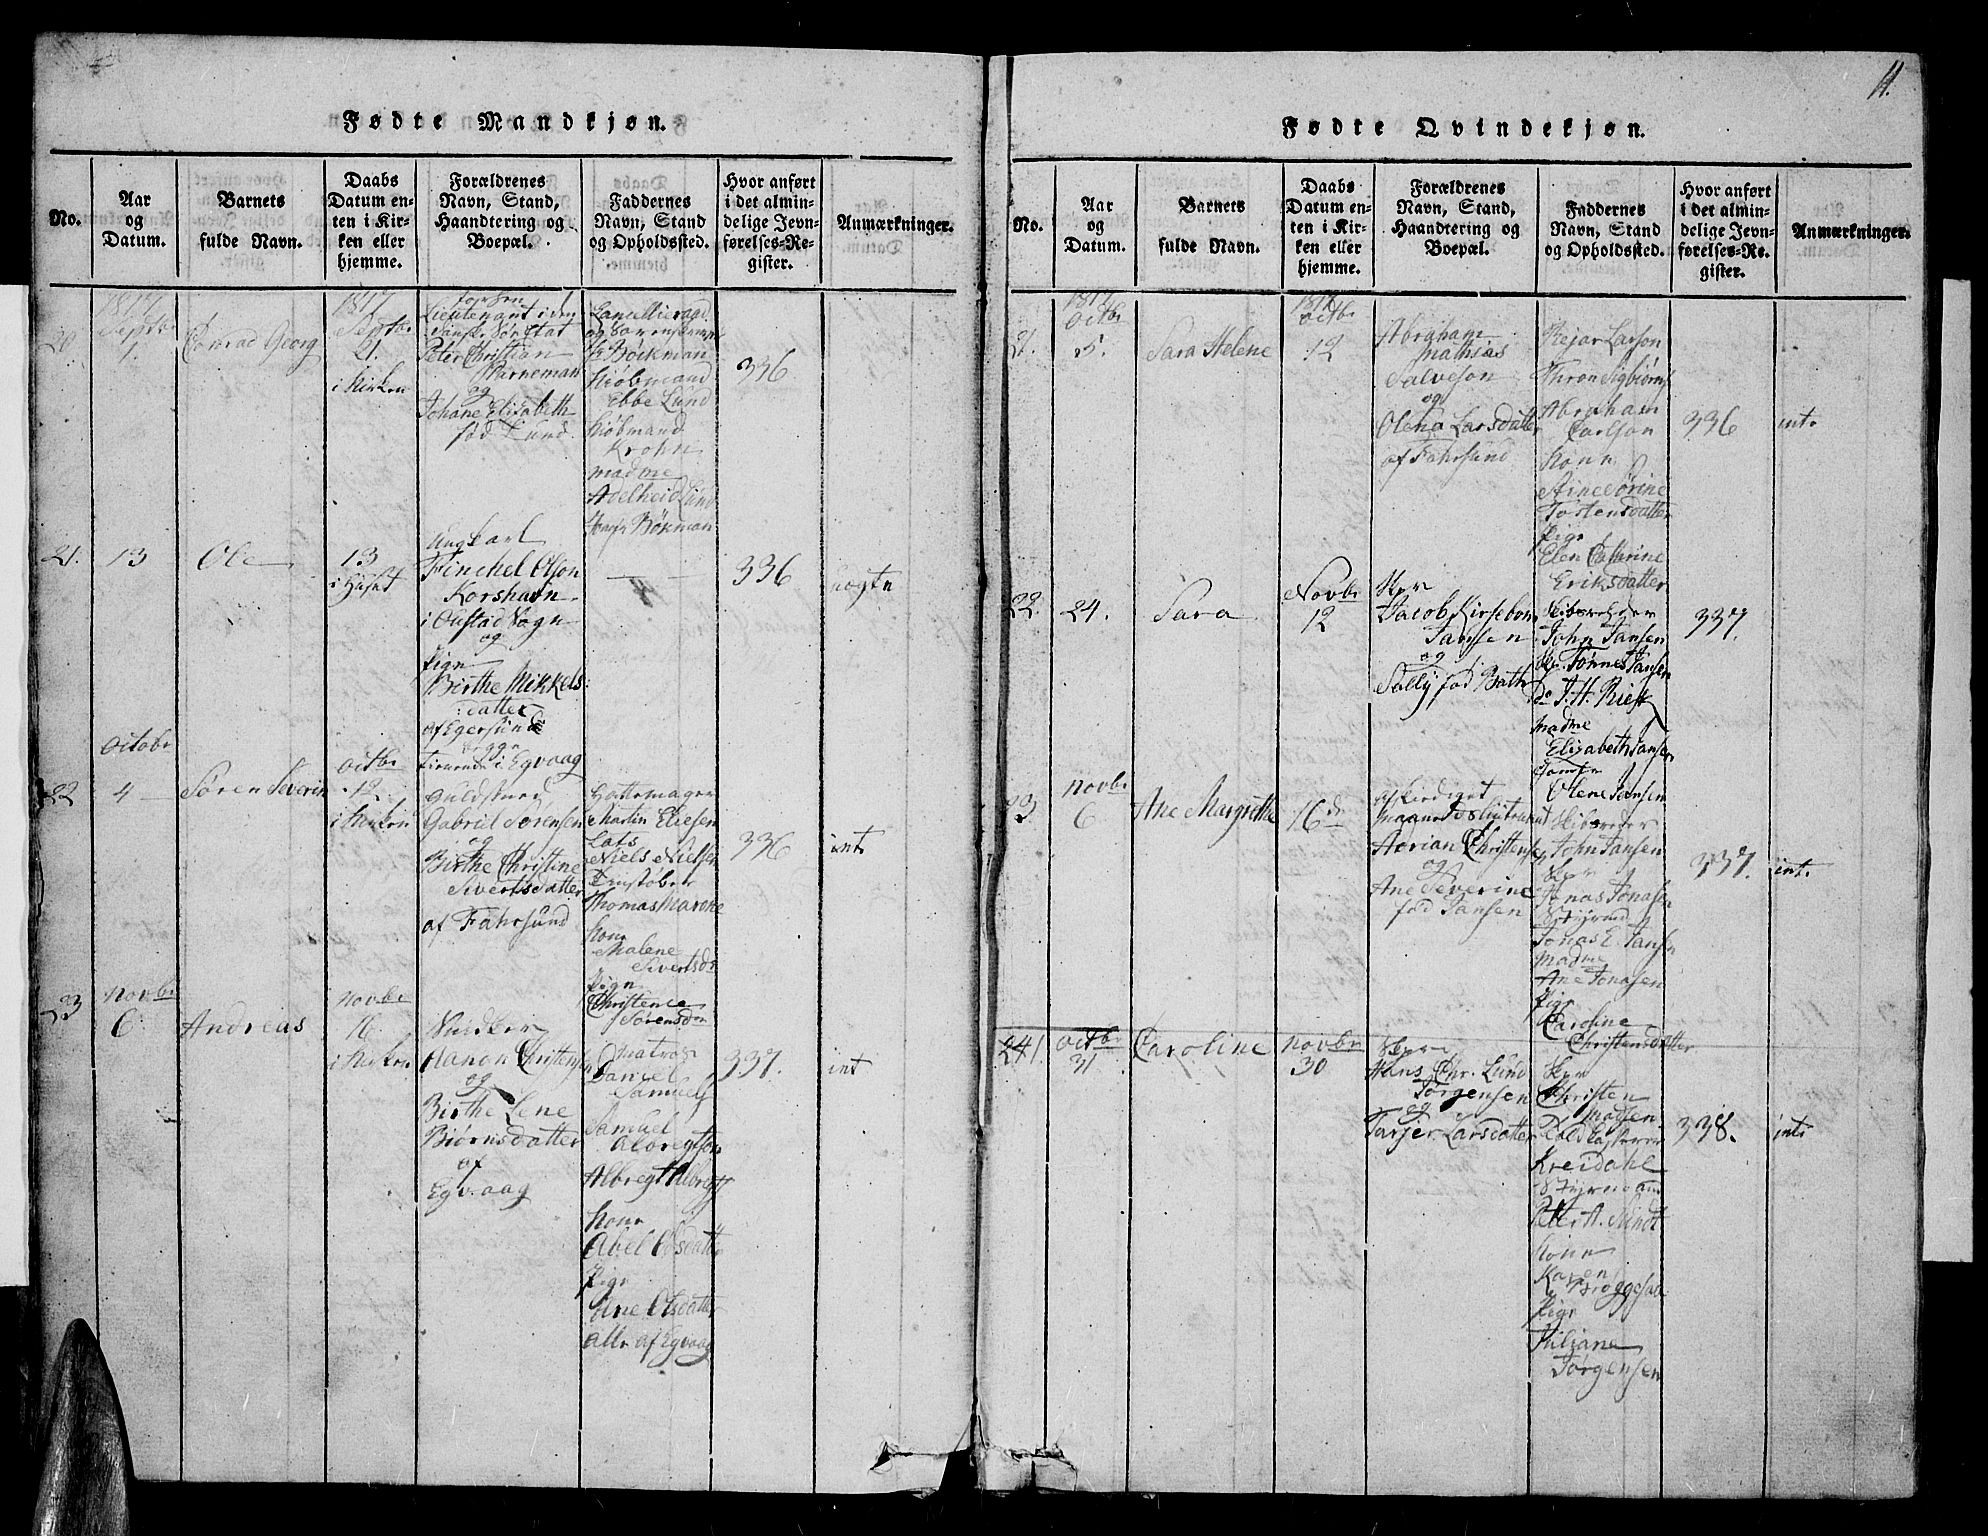 11.
Fødte Mandkjøn.
No.
Aar
og
Datum.
Barnets
fulde Navn.
Daabs
Datum en-
ten i Kir-
ken eller
hjemme.
Forældrenes
Navn, Stand,
Haandtering og
Boepæl.
Faddernes
Navn, Stand
og Opholdssted.
Hvor anført
i det almin-
delige Jevn-
førelses-Re-
gister.
Anmærkninger.
20
1817
Septbr
1.
Conrad Georg
1817
Septbr
21.
i Kirken
Lieutenant i den
Peter Christian
Warneman
og
Johane Elisabeth
fød Lund
Bøckman
Kiøbmand
Ebbe Lund
Kiøbmand
Krohn
madme
Adelheid Lund
Bøkman
336
21.
13
Ole
13
i Huset
Ungkarl
Finchel Olson
Korshavn
i Sogn
og
Pign
Birthe Mikkels:
:datter
af Egersund
i Egvaag
336
uægte
22
Octobr
4
Søren Severin
Octbr
12.
i Kirken
Guldsmed
Gabriel Sørensen
og
Birthe Christine
Sivertsdatter
af Fahrsund
Hattemager
Martin Eliesen
Lots
Niels Nielsen
Thomas
Kone
Malene
Sivertsdr
Pign
Christence
Sørensdr
336
int
23
Novbr
6
Andreas
Novbr
16
i Kirken
Christensen
og
Birthe Lene
Biørnsdatter
af
Egvaag
Matros
Daniel
Samuels
Samuel
Albregtsen
Albregt Albregts
Kone
Abel
Pige
Ane Olsdatter
alle af Egvaag
337.
int
Fødte Qvindekjøn.
No.
Aar
og
Datum.
Barnets
fulde Navn.
Daabs
Datum en-
ten i Kir-
ken eller
hjemme.
Forældrenes
Navn, Stand,
Haandtering og
Boepæl.
Faddernes
Navn, Stand
og Opholdssted.
Hvor anført
i det almin-
delige Jevn-
førelses-Re-
gister.
Anmærkninger.
21.
1817
Octbr
5.
Sara Helene
1817
Octbr
12
Abraham
Mathias
Salveson
og
Olena Larsdatter
af Fahrsund
Larson
Abraham
Carlson
Kone
Sørine
Torkensdatter
Pige
Elen Catarine
Eriksdatter
336
int.
22.
24.
Sara
Novbr
12
Skpr
Jacob Kirsebom
Jansen
og
Sally fød Bath
Skibsreder
John Jansen
Skpr Tønnes Jansen
Do J. H. Rief
Madme
Elizabeth Jansen
Jomfr
Olene Jansen
337.
23
Novbr
6
Ane Margrethe
16de
Adrian Christensen
og
Ane Severine
fød Jansen
Skibsreder
John Jansen
Skpr
Jonas Jonasen
Styrmd
Jonas E. Jansen
Madme
Ane Jonasen
Pige
Caroline
Christensdatter
337.
int.
24.
Octbr
31
Caroline
Novbr
30
Skpr
Hans Chr. Lund
Jørgensen
og
Tarjer Larsdatter
Skpr
Christen
Madsen
Kreidahl
Styrmand
Peter A. Sundt
Kone
Karen
Pige
Juliane
Jørgensen
338.
int